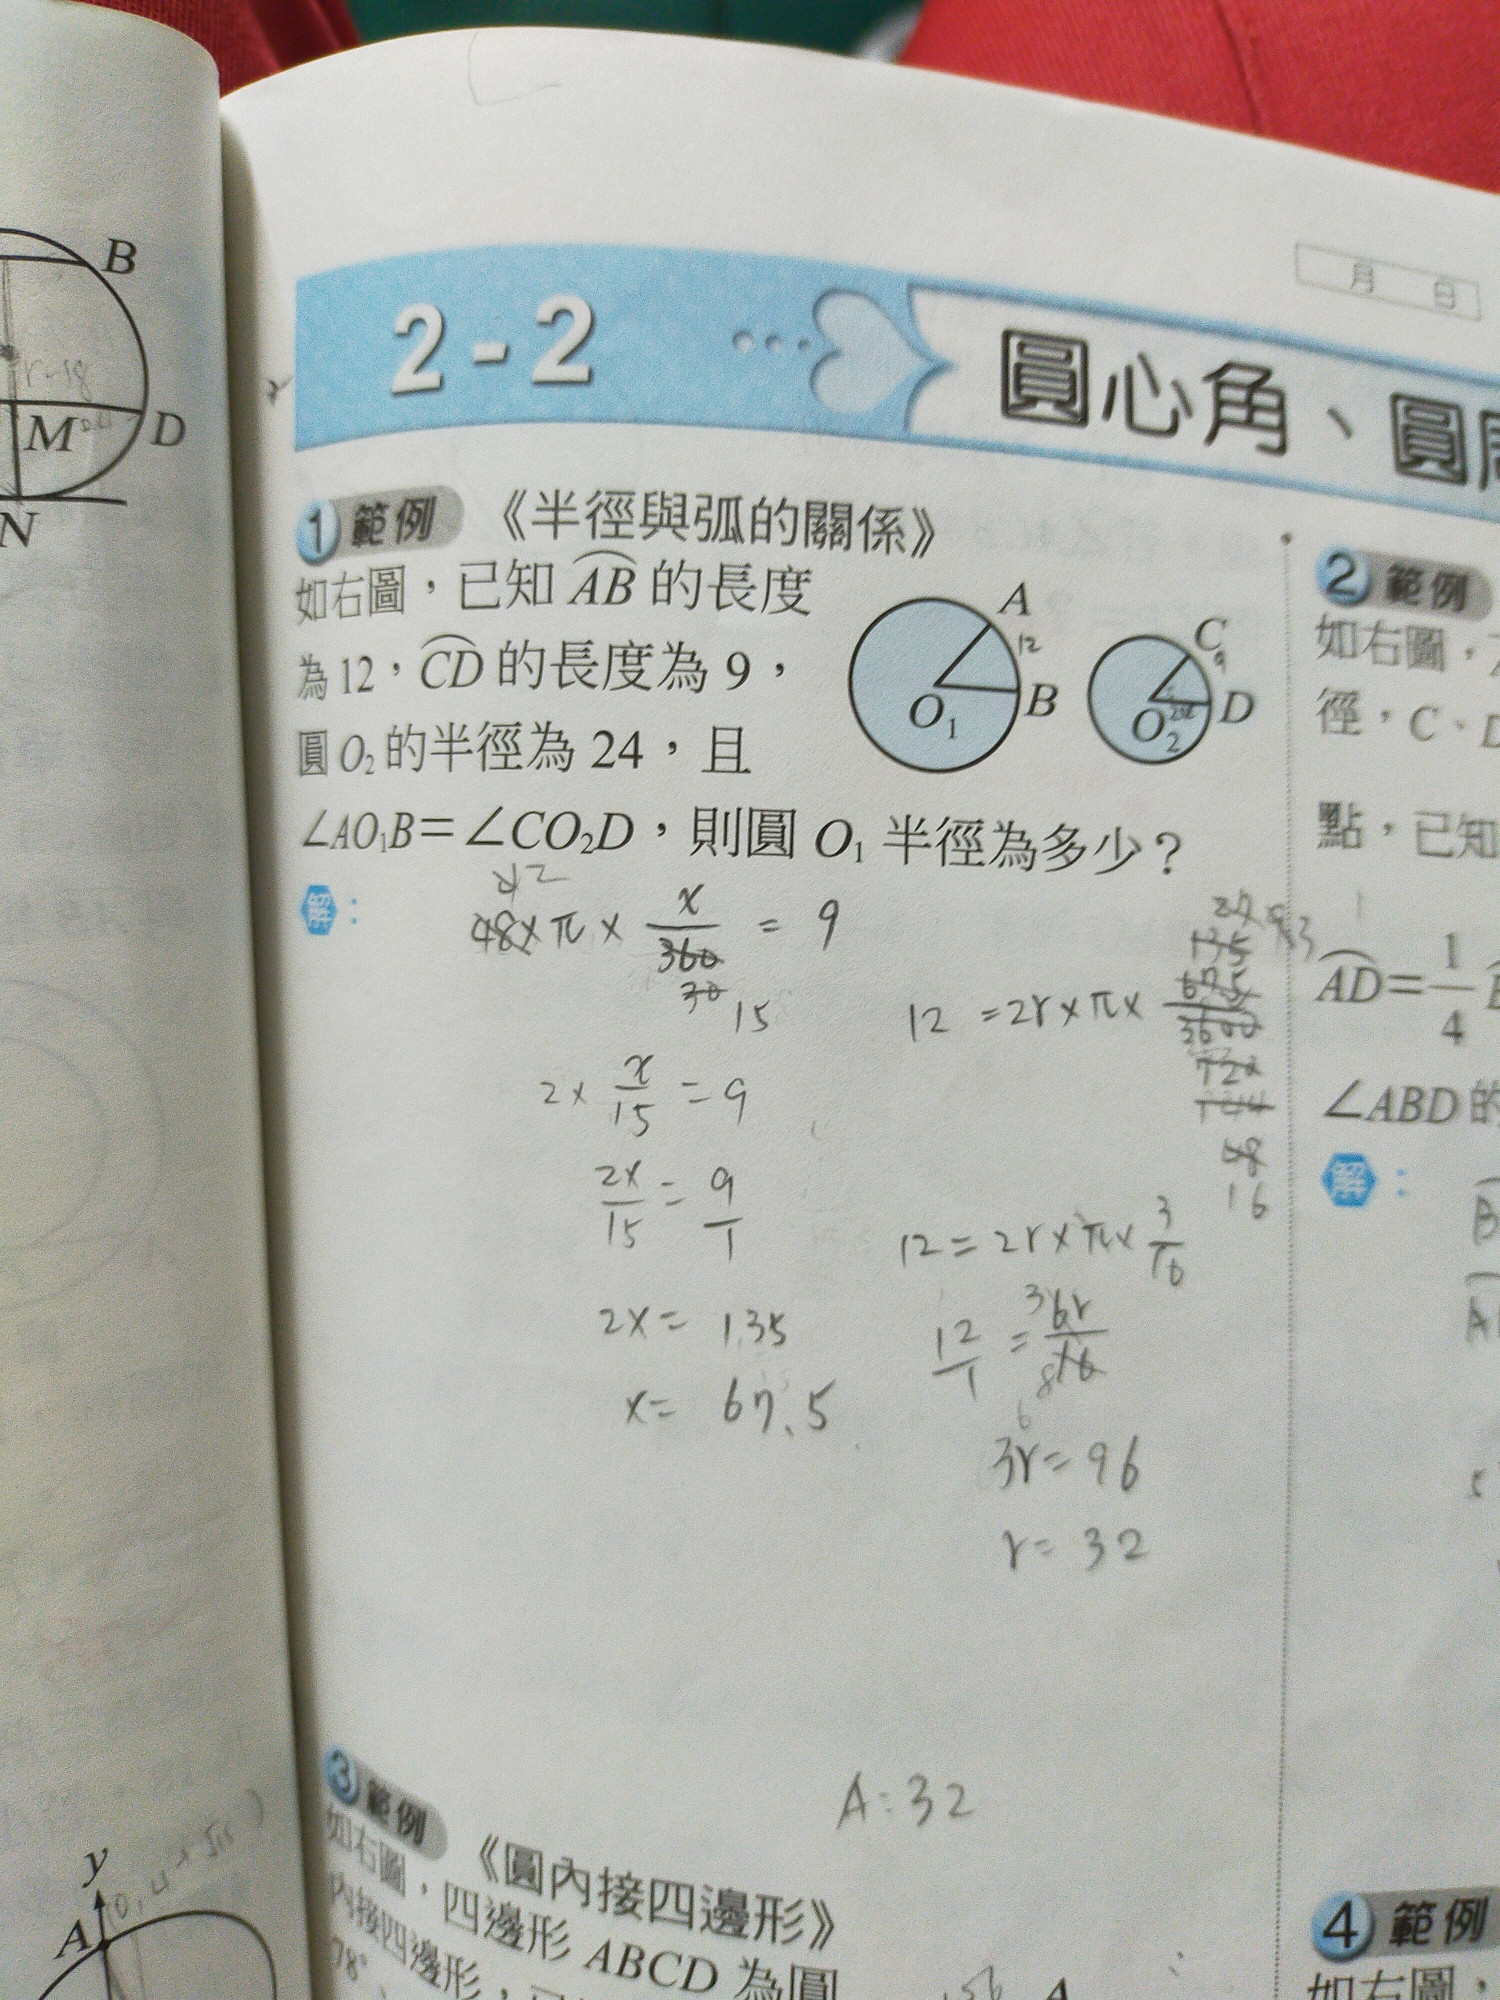 B
r-18
M
D
N
月 日
2-2
圓心角、圓
1 範例 《半徑與弧的關係》
如右圖，已知 AB 的長度
為 12，CD 的長度為 9，
圓 O₂ 的半徑為 24，且
∠AO₁B=∠CO₂D，則圓 O₁ 半徑為多少？
A
12
B
O₁
C
9
D
O₂
解：
48×π× x/360 = 9
30
15
2× x/15 = 9
2x/15 = 9/1
2x = 135
x = 67.5
12 = 2r×π×
16
12 = 2r×π× 3/16
12/1 = 36r/16
8
3r = 96
r = 32
A: 32
2 範例
如右圖，
徑，C、D
點，已知
AD= 1/4
∠ABD 的
解：
3 範例 《圓內接四邊形》
如右圖，四邊形 ABCD 為圓
內接四邊形，
78°
A
4 範例
如右圖，
y
A